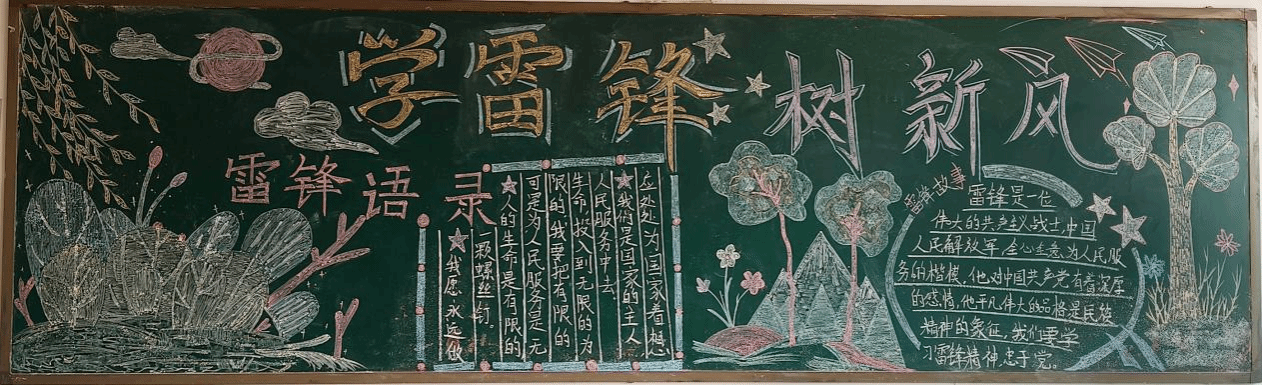 学雷锋 树新风
雷锋语录
★我愿永远做
一颗螺丝钉。
★人的生命是有限的
可是为人民服务是无
限的,我要把有限的
生命投入到无限的为
人民服务中去。
★我们是国家的主人
应处处为国家着想
雷锋故事
雷锋是一位
伟大的共产主义战士,中国
人民解放军,全心全意为人民服
务的楷模,他对中国共产党有着深厚
的感情,他平凡伟大的品格是民族
精神的象征,我们要学
习雷锋精神,忠于党。